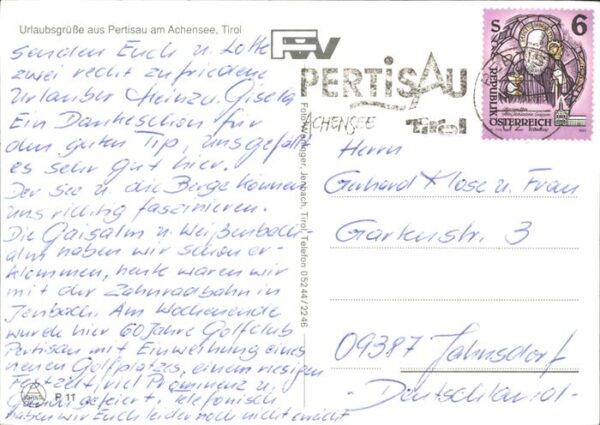 Urlaubsgrüße aus Pertisau am Achensee, Tirol
senden Euch u. Lotte
zwei recht zufriedene
Urlauber Heinz u. Gisela
Ein Dankeschön für
den guten Tip, uns gefällt
es sehr gut hier.
Der See u. die Berge können
uns richtig faszinieren.
Die Gaisalm u. Weißenbach-
alm haben wir schon er-
klommen, heute waren wir
mit der Zahnradbahn in
Jenbach. Am Wochenende
wurde hier 60 Jahre Golfclub
Pertisau mit Einweihung eines
neuen Golfplatzes, einem riesigen
Festzelt, viel Prominenz u.
gefeiert. Telefonisch
haben wir Euch leider noch nicht erreicht
P 11
Foto Jenbach, Tirol, Telefon 05244/2246
PERTISAU
ACHENSEE
Tirol
S 6
REPUBLIK
ÖSTERREICH
Herrn
Gerhard Klose u. Frau
Gartenstr. 3
09387 Jahnsdorf
Deutschland